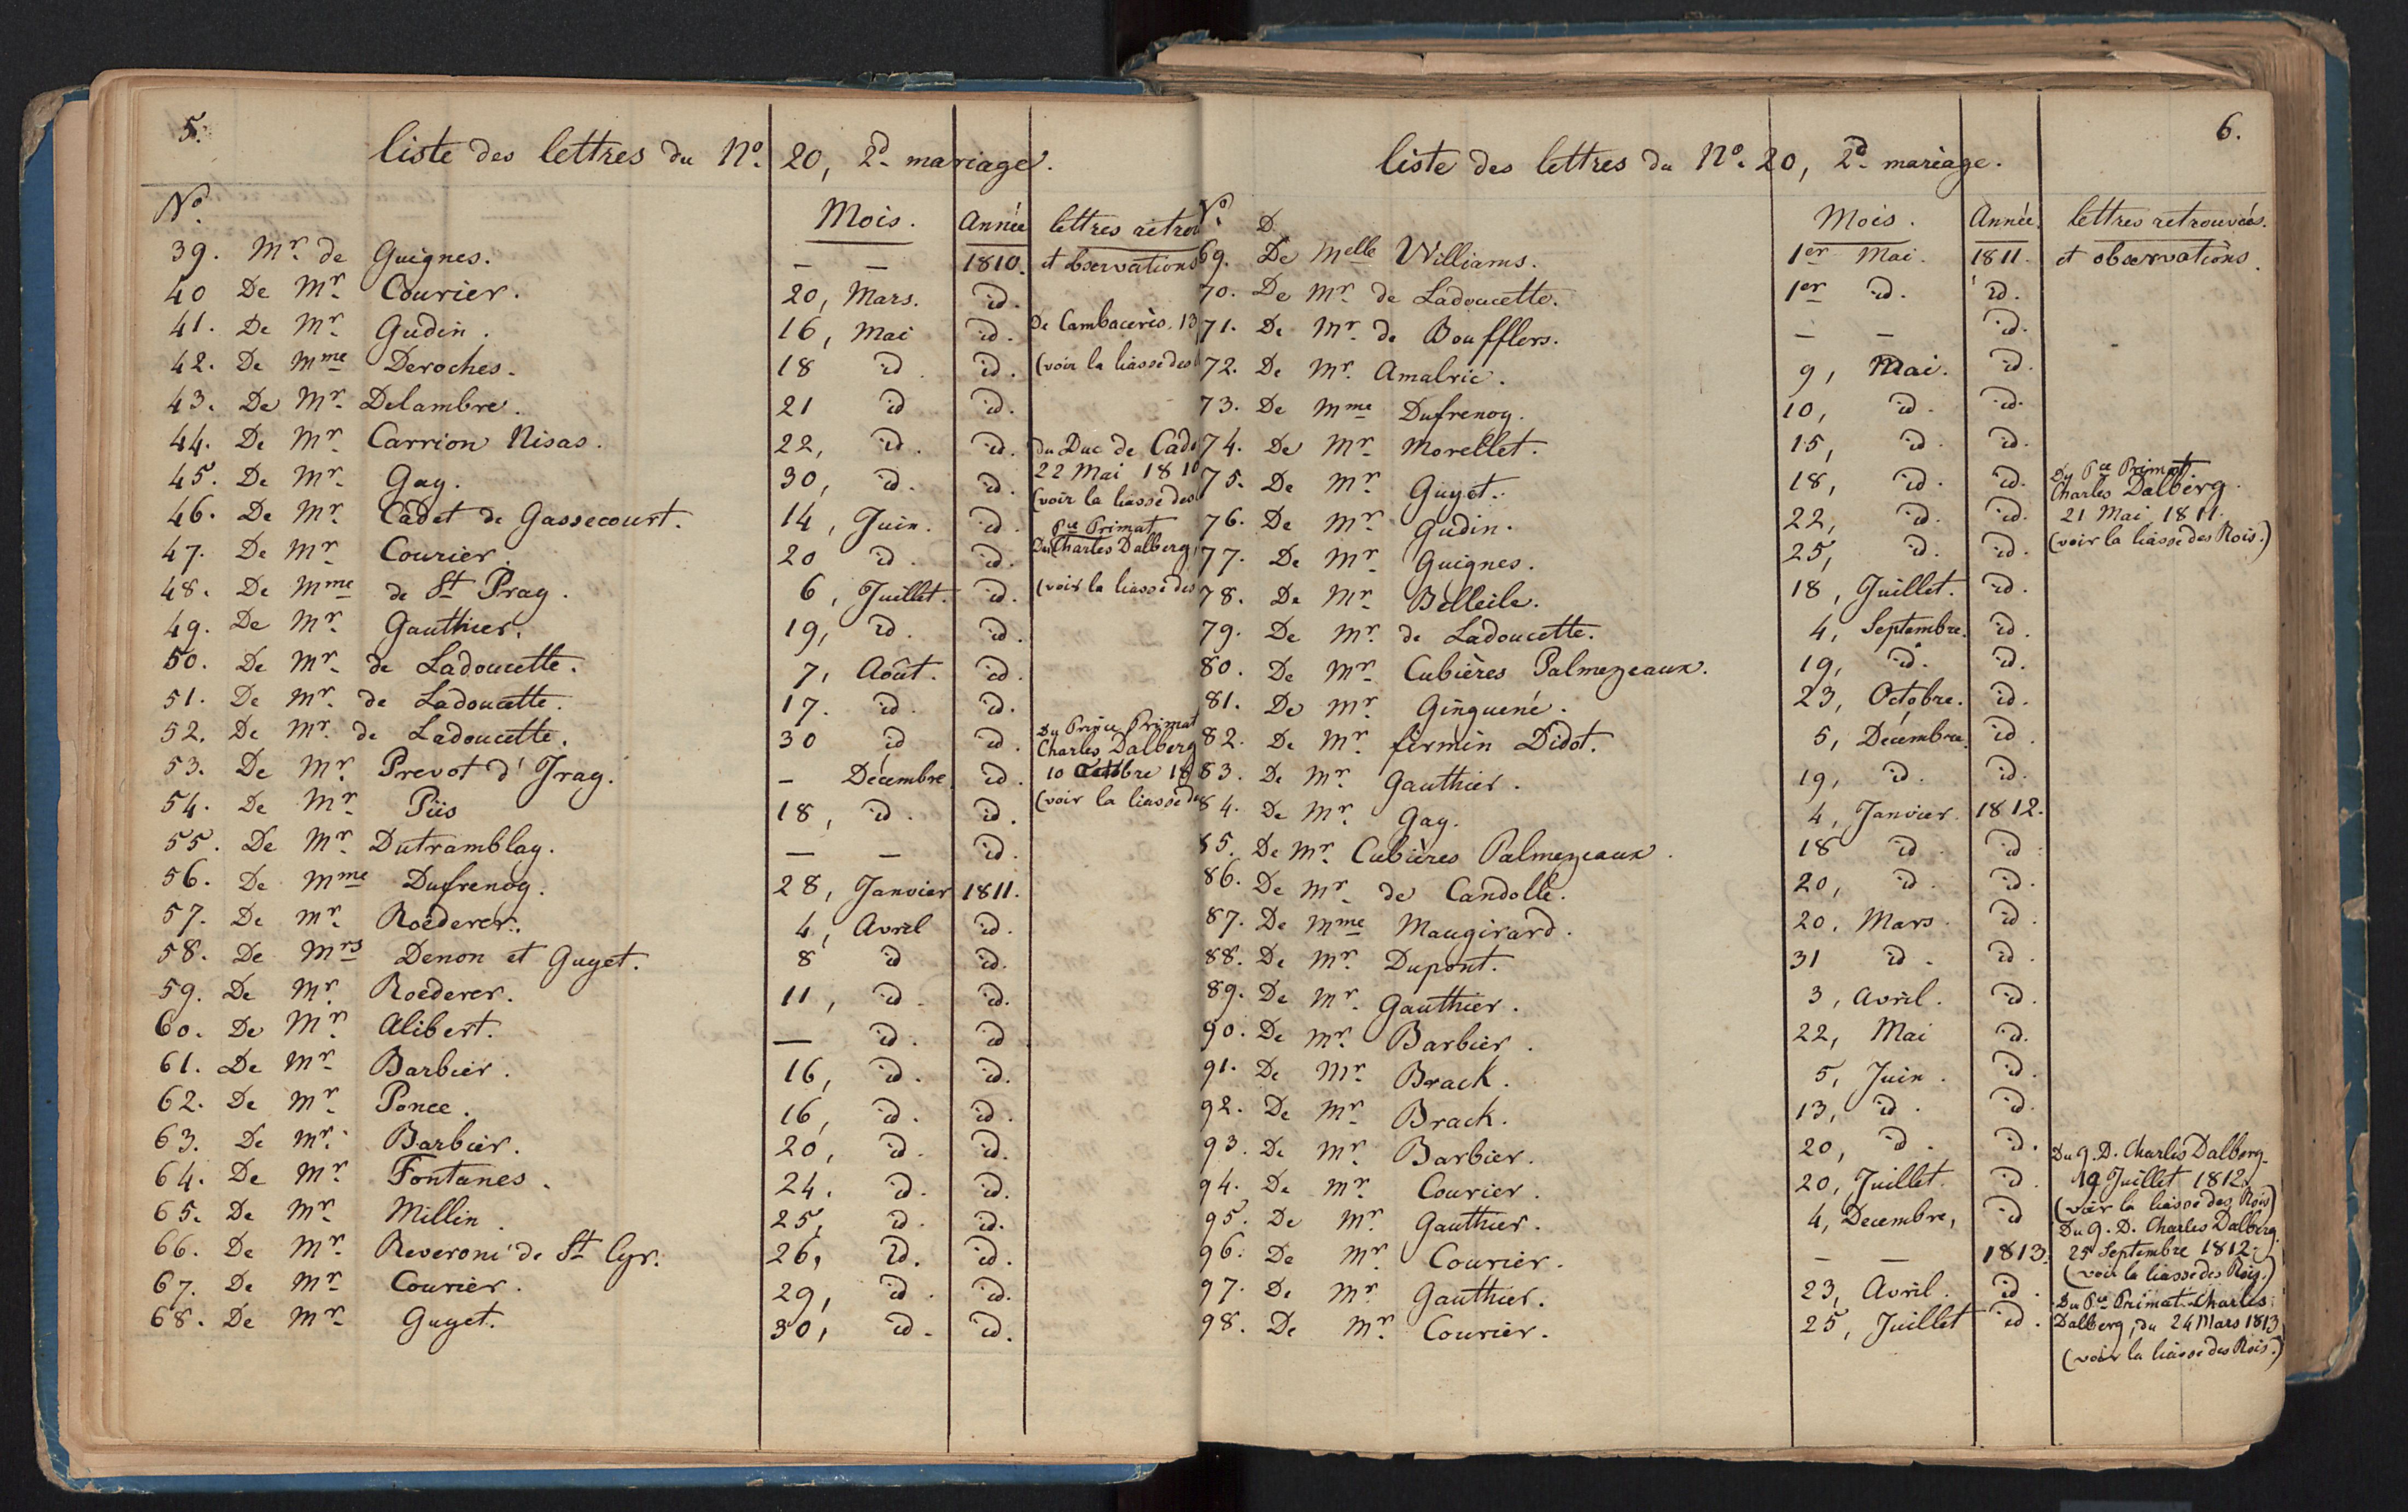 5.
liste des lettres du No. 20, 2d. mariage.
No. Mois. Année lettres retrou
39. Mr. de Guignes. — — 1810. et observations
40 De Mr. Courier. 20, Mars. id.
41. De Mr. Gudin. 16, Mai id. De Cambacerès. 13
42. De Mme Deroches. 18 id id. (voir la liasse des
43. De Mr. Delambre. 21 id id.
44. De Mr. Carrion Nisas. 22, id. id. du Duc de Cado
45. De Mr. Gay. 30, id. id. 22 Mai 1810
(voir la liasse des
46. De Mr. Cadet de Gassecourt. 14, Juin. id. Pce Primat
47. De Mr. Courier. 20 id. id. Du Charles Dalberg,
48. De Mme de St Pray. 6, Juillet. id. (voir la liasse des
49. De Mr. Gauthier. 19, id. id.
50. De Mr. de Ladoucette. 7, Août. id.
51. De Mr. de Ladoucette. 17. id. id.
52. De Mr. de Ladoucette. 30 id id. Du Prince Primat
Charles Dalberg
53. De Mr. Prevot d'Jray. — Décembre id. 10 Octobre 18
54. De Mr. Piis 18, id. id. (voir la liasse de
55. De Mr. Dutramblay. — — id.
56. De Mme Dufrenoy. 28, Janvier 1811.
57. De Mr. Roëderer. 4, Avril id.
58. De Mrs Denon et Guyet. 8 id id.
59. De Mr. Roederer. 11, id. id.
60. De Mr. Alibert. — id. id
61. De Mr. Barbier. 16, id. id.
62. De Mr. Ponce. 16, id. id.
63. De Mr. Barbier. 20, id. id.
64. De Mr. Fontanes. 24. id. id.
65. De Mr. Millin. 25, id. id.
66. De Mr. Reveroni de St Cyr. 26, id. id.
67. De Mr. Courier. 29, id. id.
68. De Mr. Guyet. 30, id. id.
6.
liste des lettres du No. 20, 2d. mariage.
No. D. Mois. Année. lettres retrouvées.
69. De Melle Williams. 1er Mai. 1811. et observations.
70. De Mr. de Ladoucette. 1er id. id.
71. De Mr. de Boufflers. — — id.
72. De Mr. Amalric. 9, Mai. id.
73. De Mme Dufrenoy. 10, id. id.
74. De Mr. Morellet. 15, id. id.
75. De Mr. Guyet. 18, id. id. Du Pce Primat
Charles Dalberg.
76. De Mr. Gudin. 22, id. id. 21 Mai 1811.
77. De Mr. Guignes. 25, id. id. (voir la liasse des Rois.)
78. De Mr. Belleile. 18, Juillet. id.
79. De Mr. de Ladoucette. 4, Septembre. id.
80. De Mr. Cubières Palmezeaux. 19, id. id.
81. De Mr. Ginguené. 23, Octobre. id.
82. De Mr. firmin Didot. 5, Décembre. id.
83. De Mr. Gauthier. 19, id. id.
84. De Mr. Gay. 4, Janvier. 1812.
85. De Mr. Cubières Palmezeaux. 18 id id
86. De Mr. de Candolle. 20, id. id.
87. De Mme Maugirard. 20, Mars. id.
88. De Mr. Dupont. 31 id. id.
89. De Mr. Gauthier. 3, Avril. id.
90. De Mr. Barbier. 22, Mai id.
91. De Mr. Brack. 5, Juin. id.
92. De Mr. Brack. 13, id. id.
93. De Mr. Barbier. 20, id. id. Du G. D. Charles Dalberg.
94. De Mr. Courier. 20, Juillet. id. 19 Juillet 1812.
(voir la liasse des Rois)
95. De Mr. Gauthier. 4, Decembre, id Du G. D. Charles Dalberg.
96. De Mr. Courier. — — 1813. 25 Septembre 1812.
(voir la liasse des Rois.)
97. De Mr. Gauthier. 23, Avril. id. Du Pce Primat Charles
98. De Mr. Courier. 25, Juillet id. Dalberg, du 24 Mars 1813
(voir la liasse des Rois.)